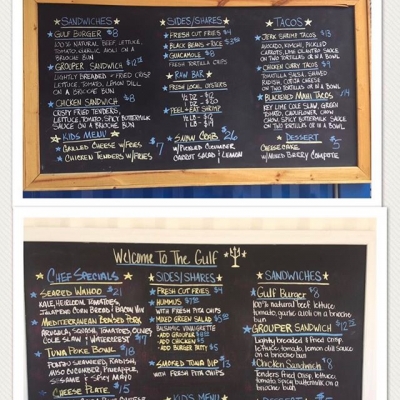 SANDWICHES
GULF BURGER $8
100% NATURAL BEEF, LETTUCE,
TOMATO, GARLIC AIOLI ON
A BRIOCHE BUN
GROUPER SANDWICH
LIGHTLY BREADED + FRIED CRISP
LETTUCE, TOMATO, LEMON DILL
ON A BRIOCHE BUN
CHICKEN SANDWICH $8
CRISPY FRIED TENDERS,
LETTUCE, TOMATO, SPICY BUTTERMILK
SAUCE ON A BRIOCHE BUN
KIDS MENU
GRILLED CHEESE W/FRIES
CHICKEN TENDERS W/FRIES
$7
SIDES/SHARES
FRESH CUT FRIES $4
BLACK BEANS + RICE
GUACAMOLE $8
FRESH TORTILLA CHIPS
RAW BAR
FRESH LOCAL OYSTERS
PEEL + EAT SHRIMP
1/2 LB - $12
1 LB - $19
W/PICKLED CUCUMBER
CARROT SALAD + LEMON
TACOS
JERK SHRIMP TACOS
AVOCADO, KIMCHI, PICKLED
CARROTS, LIME CILANTRO SAUCE
ON TWO TORTILLAS OR IN A BOWL
CHICKEN CURRY TACOS
RADISH, COTIJA CHEESE
ON TWO TORTILLAS OR IN A BOWL
BLACKENED MAHI TACOS
KEY LIME COLE SLAW, GREEN
TOMATO, CAULIFLOWER CHOW
CHOW, SPICY BUTTERMILK SAUCE
ON TWO TORTILLAS OR IN A BOWL
DESSERT
CHEESECAKE
W/MIXED BERRY COMPOTE
$5
Welcome To The Gulf
CHEF SPECIALS
SEARED WAHOO $21
KALE, HEIRLOOM TOMATOES,
JALAPENO CORN BREAD + BACON VIN
MEDITERRANEAN
ARUGULA, SQUASH, TOMATOES, OLIVES
COLE SLAW + WATERCRESS $17
TUNA POKE BOWL $18
PONZU SEAWEED, RADISH,
MISO CUCUMBER, PINEAPPLE,
SESAME + SPICY MAYO
CHEESE PLATE $15
SIDES/SHARES
FRESH CUT FRIES $4
HUMMUS
WITH FRESH PITA CHIPS
MIXED GREEN SALAD
BALSAMIC VINAIGRETTE
ADD GROUPER
ADD CHICKEN $5
ADD BURGER PATTY $5
SMOKED TUNA DIP $13
WITH FRESH PITA CHIPS
KIDS MENU
SANDWICHES
Gulf Burger $8
100% natural beef lettuce
tomato, garlic aioli on a brioche
bun
GROUPER SANDWICH
Lightly breaded + fried crisp
lettuce, tomato, lemon dill sauce
on a brioche bun
Chicken Sandwich $8
Tenders fried crisp, lettuce
tomato, spicy buttermilk on a
brioche bun